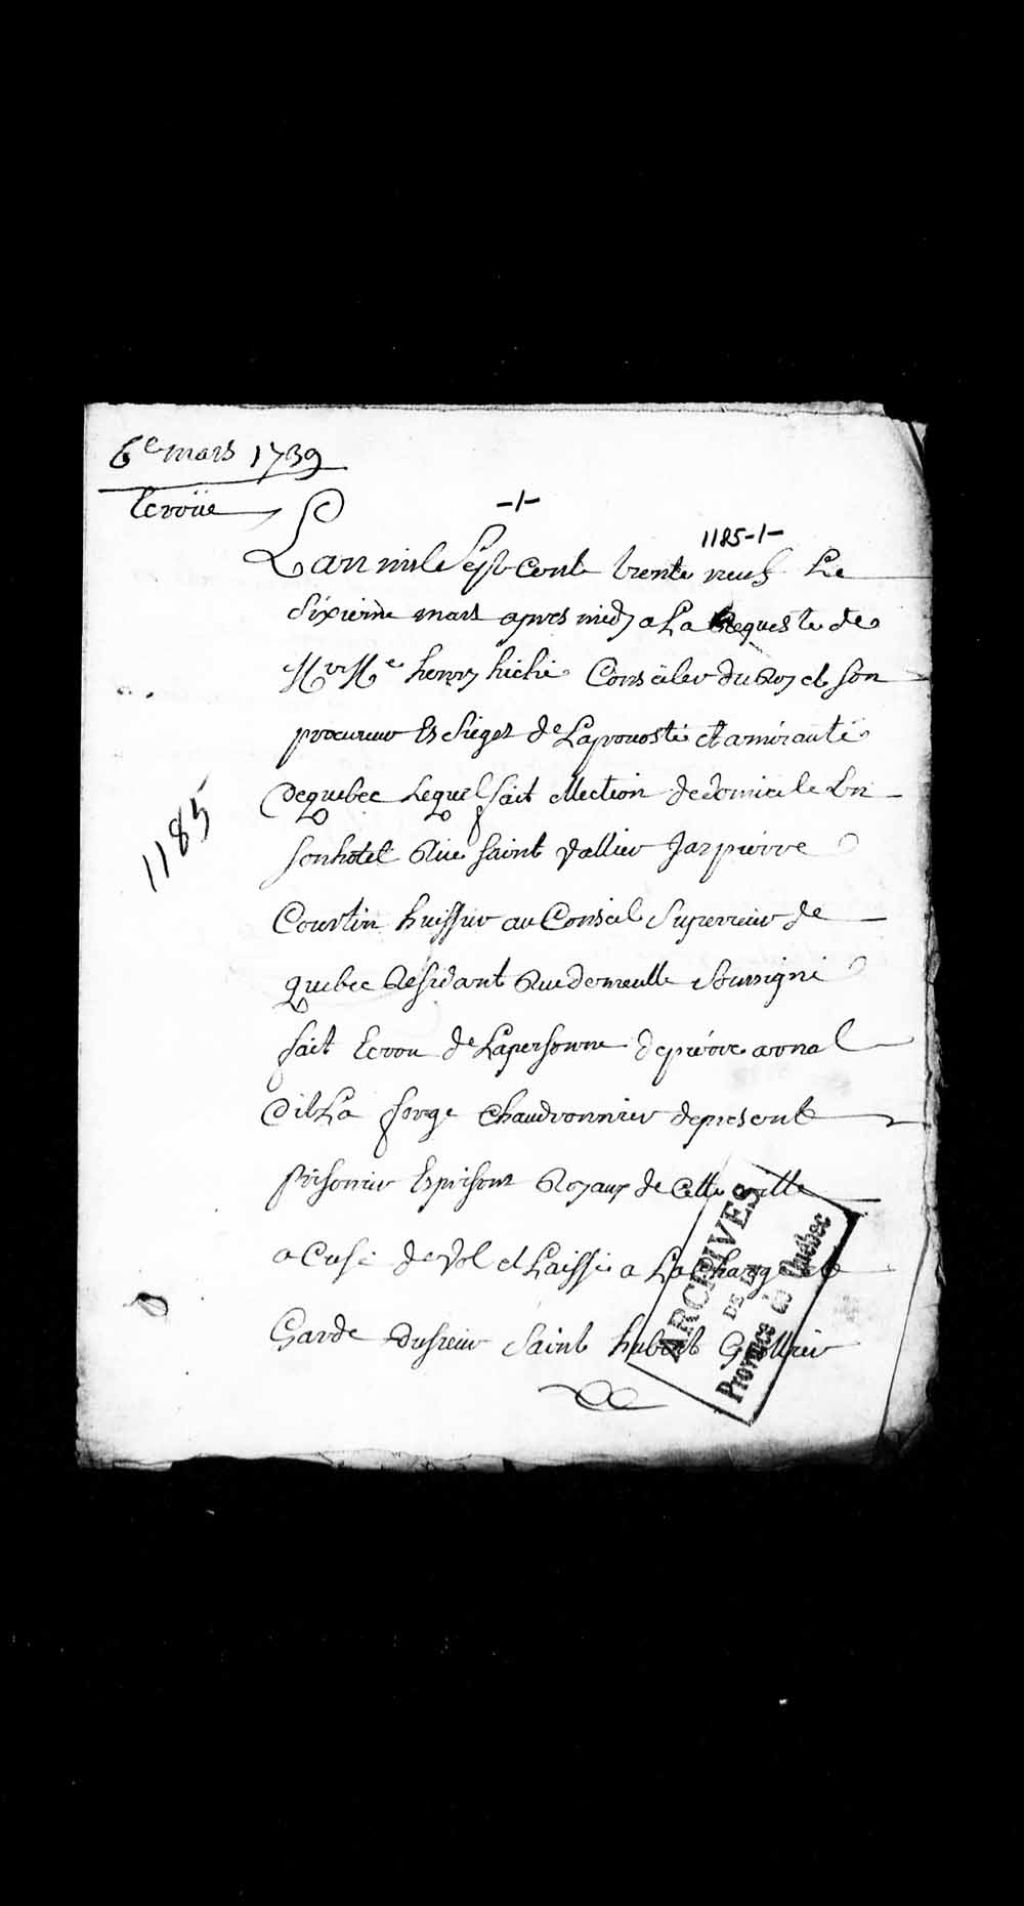 6e mars 1739
Ecroüe
-1-
1185-1-
Lan mile Sept Cent trente neuf Le
Sixieme mars apres midy a La Requeste de
Mr Me henry hiché Conseiler du Roy et Son
procureur Es Sieges de Laprouosté et amirauté
de quebec Lequel fait ellection de domicile En
Son hotel Rue Saint Vallier Jay pierre
Courtin huissier au Conseil Superieur de
quebec Residant Rue demeulle Soussigné
fait Ecrou de Lapersonne de pierre arnal
dit La forge Chaudronnier de present
prisonier Es prisons Royaux de Cette ville
acusé de Vol et Laissé a La Charge et
Garde du Sieur Saint hubert Geollier
1185
ARCHIVES
DE LA
Province de Québec